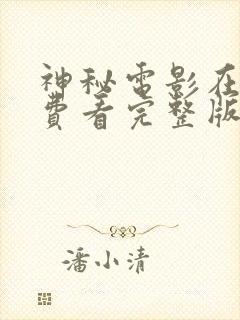 神秘电影在
费看完整版
潘小清